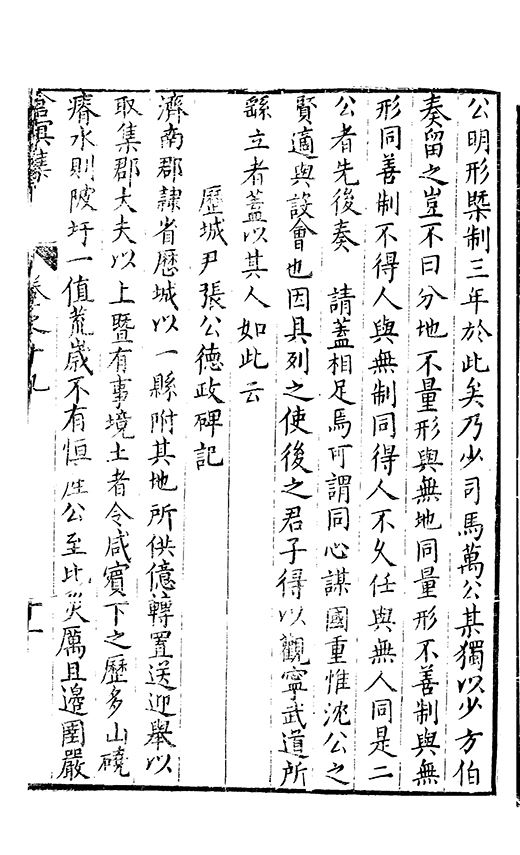 公明形槩制三年於此矣乃少司馬萬公某獨以少方伯
奏留之豈不曰分地不量形與無地同量形不善制與無
形同善制不得人與無制同得人不久任與無人同是二
公者先後奏　請蓋相足焉可謂同心謀國重惟沈公之
賢適與設會也因具列之使後之君子得以觀寧武道所
繇立者蓋以其人如此云
歷城尹張公德政碑記
濟南郡隷省歷城以一縣附其地所供億轉置送迎舉以
取集郡大夫以上暨有事境土者令咸賓下之歷多山磽
瘠水則陂圩一值荒歲不有恒產公至比災厲且邊圉嚴
滄溟集　卷之十九　十一